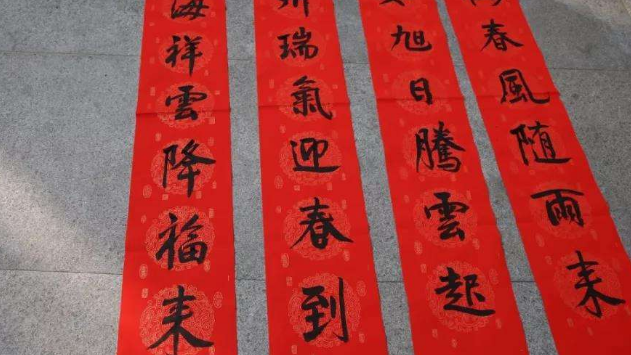 春風随雨来
旭日騰雲起
瑞氣迎春到
海祥雲降福来